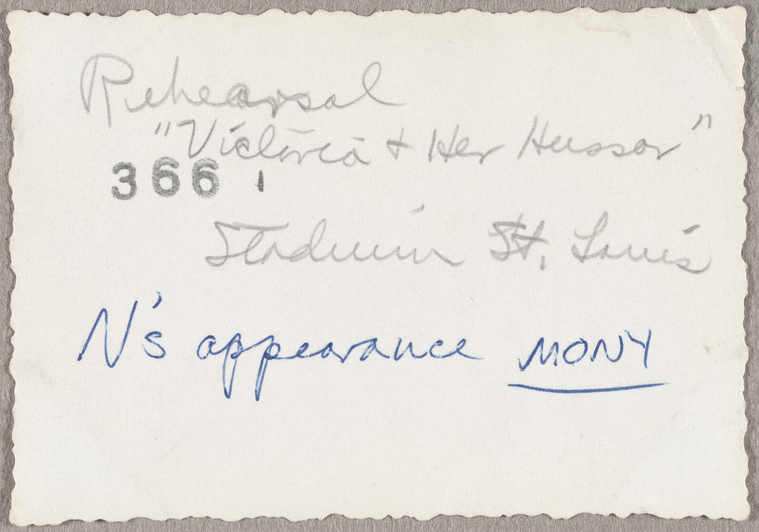 Rehearsal
"Victoria + Her Hussar"
366
Stadium St. Louis
N's appearance MONY